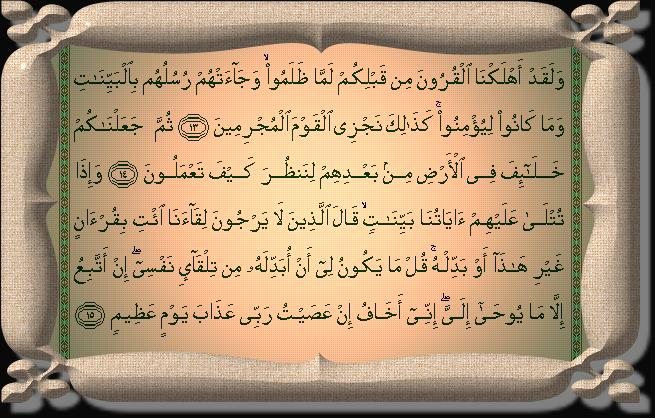 وَلَقَدْ أَهْلَكْنَا ٱلْقُرُونَ مِن قَبْلِكُمْ لَمَّا ظَلَمُوا۟ ۙ وَجَآءَتْهُمْ رُسُلُهُم بِٱلْبَيِّنَـٰتِ
وَمَا كَانُوا۟ لِيُؤْمِنُوا۟ ۚ كَذَٰلِكَ نَجْزِى ٱلْقَوْمَ ٱلْمُجْرِمِينَ ١٣ ثُمَّ جَعَلْنَـٰكُمْ
خَلَـٰٓئِفَ فِى ٱلْأَرْضِ مِنۢ بَعْدِهِمْ لِنَنظُرَ كَيْفَ تَعْمَلُونَ ١٤ وَإِذَا
تُتْلَىٰ عَلَيْهِمْ ءَايَاتُنَا بَيِّنَـٰتٍ ۙ قَالَ ٱلَّذِينَ لَا يَرْجُونَ لِقَآءَنَا ٱئْتِ بِقُرْءَانٍ
غَيْرِ هَـٰذَآ أَوْ بَدِّلْهُ ۚ قُلْ مَا يَكُونُ لِىٓ أَنْ أُبَدِّلَهُۥ مِن تِلْقَآئِ نَفْسِىٓ ۖ إِنْ أَتَّبِعُ
إِلَّا مَا يُوحَىٰٓ إِلَىَّ ۖ إِنِّىٓ أَخَافُ إِنْ عَصَيْتُ رَبِّى عَذَابَ يَوْمٍ عَظِيمٍ ١٥